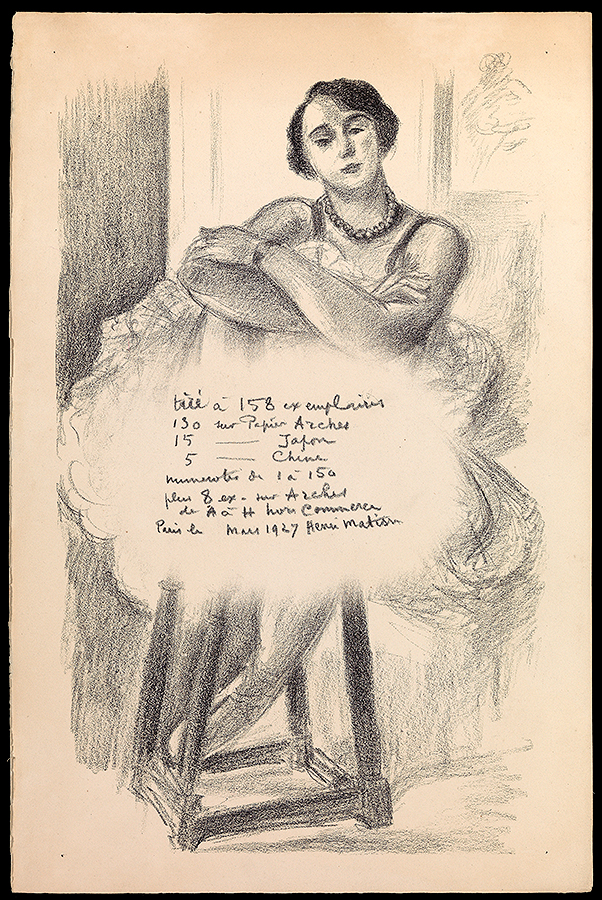 tiré à 158 exemplaires
130 sur Papier Arches
15 —— Japon
5 —— Chine
numerotés de 1 à 150
plus 8 ex - sur Arches
de A à H hors Commerce
Paris le Mars 1927 Henri Matisse